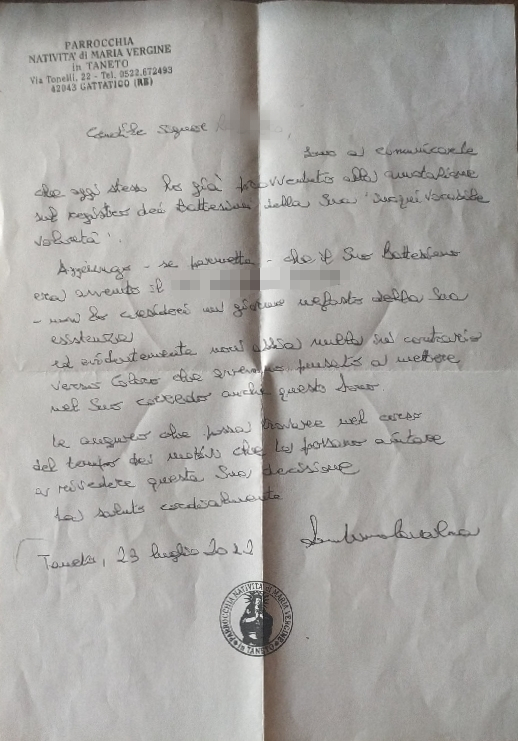 PARROCCHIA
NATIVITA' di MARIA VERGINE
in TANETO
Via Tonelli, 22 - Tel. 0522.672493
42043 GATTATICO (RE)
Gentile signore
sono a comunicarle
che oggi stesso ho già provveduto alla annotazione
sul registro dei Battesimi della Sua "inequivocabile
volontà".
Aggiungo - se permette - che il Suo Battesimo
era avvenuto il
- non lo consideri un giorno nefasto della Sua
esistenza
ed evidentemente non abbia nulla in contrario
verso coloro che avevano pensato a mettere
nel Suo corredo anche questo dono.
Le auguro che possa trovare nel corso
del tempo dei motivi che la possano aiutare
a rivedere questa Sua decisione
La saluto cordialmente
Taneto, 23 luglio 2022
PARROCCHIA NATIVITA' di MARIA VERGINE
in TANETO